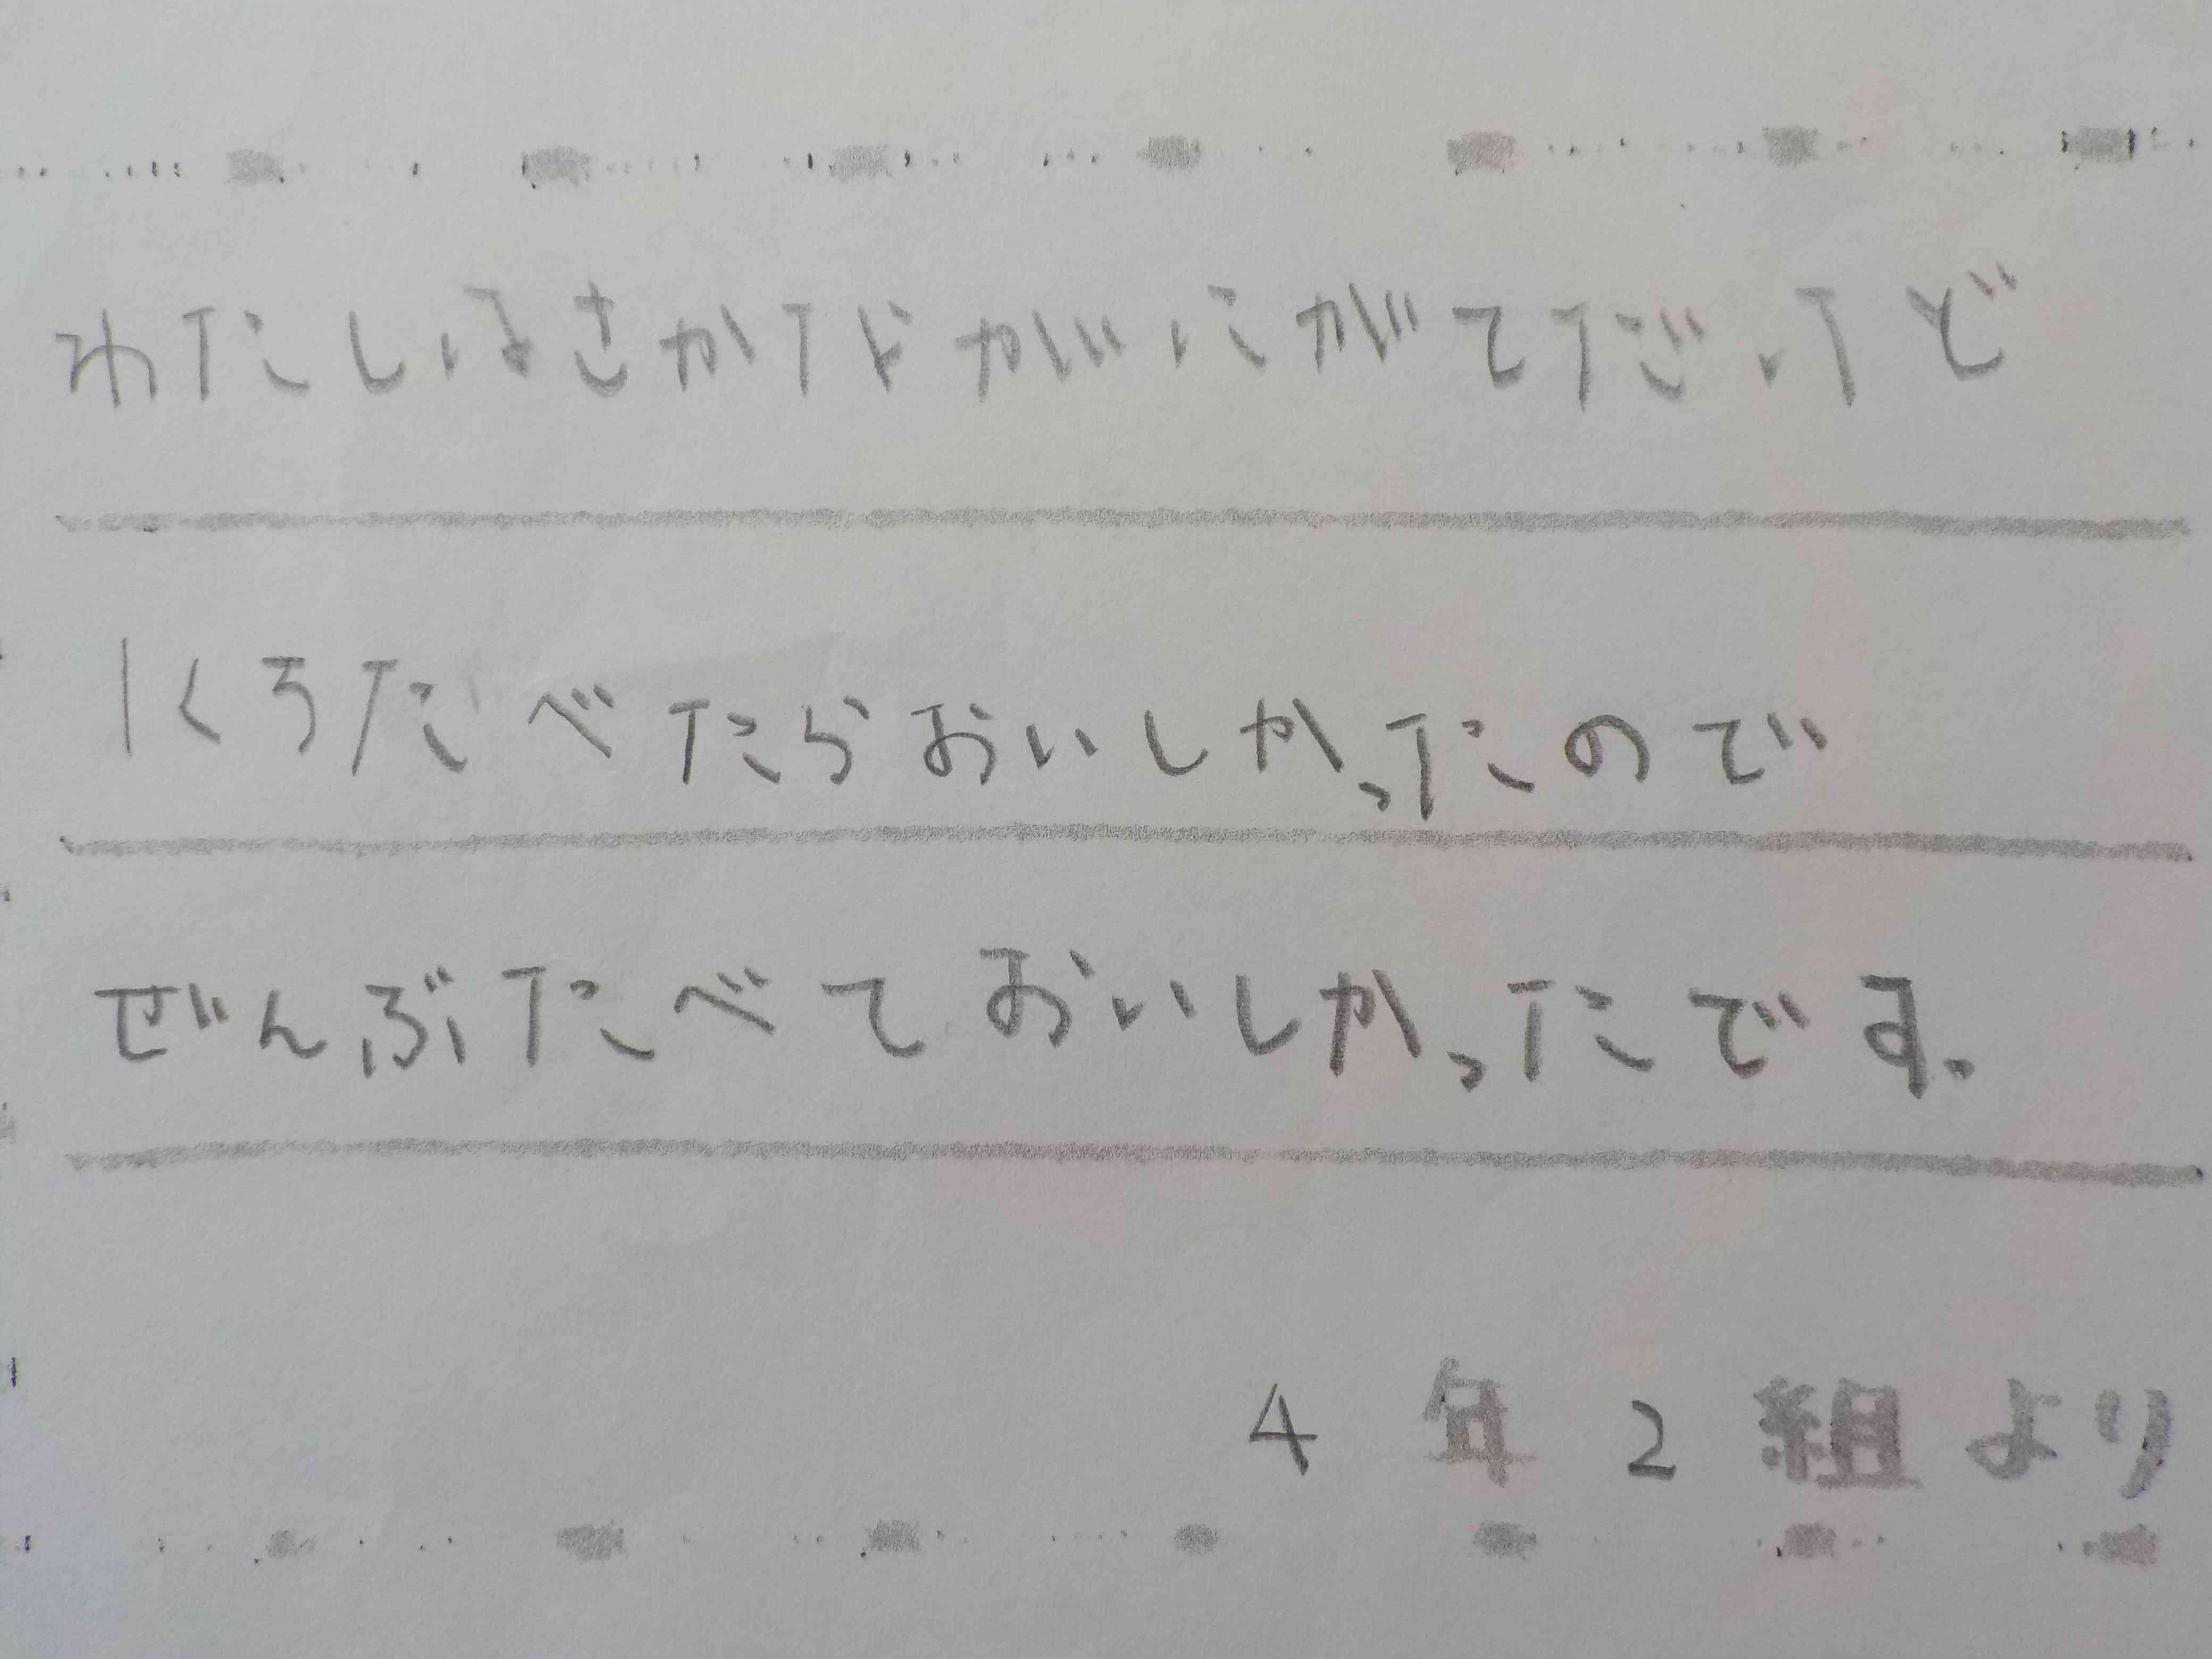 わたしはさかながにがてだけど
1くちたべたらおいしかったので
ぜんぶたべておいしかったです。
4年2組より